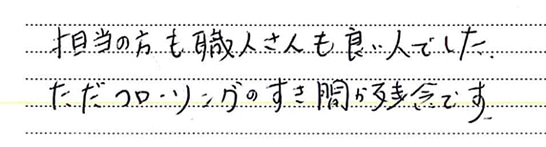 担当の方も職人さんも良い人でした。
ただフローリングのすき間が残念です